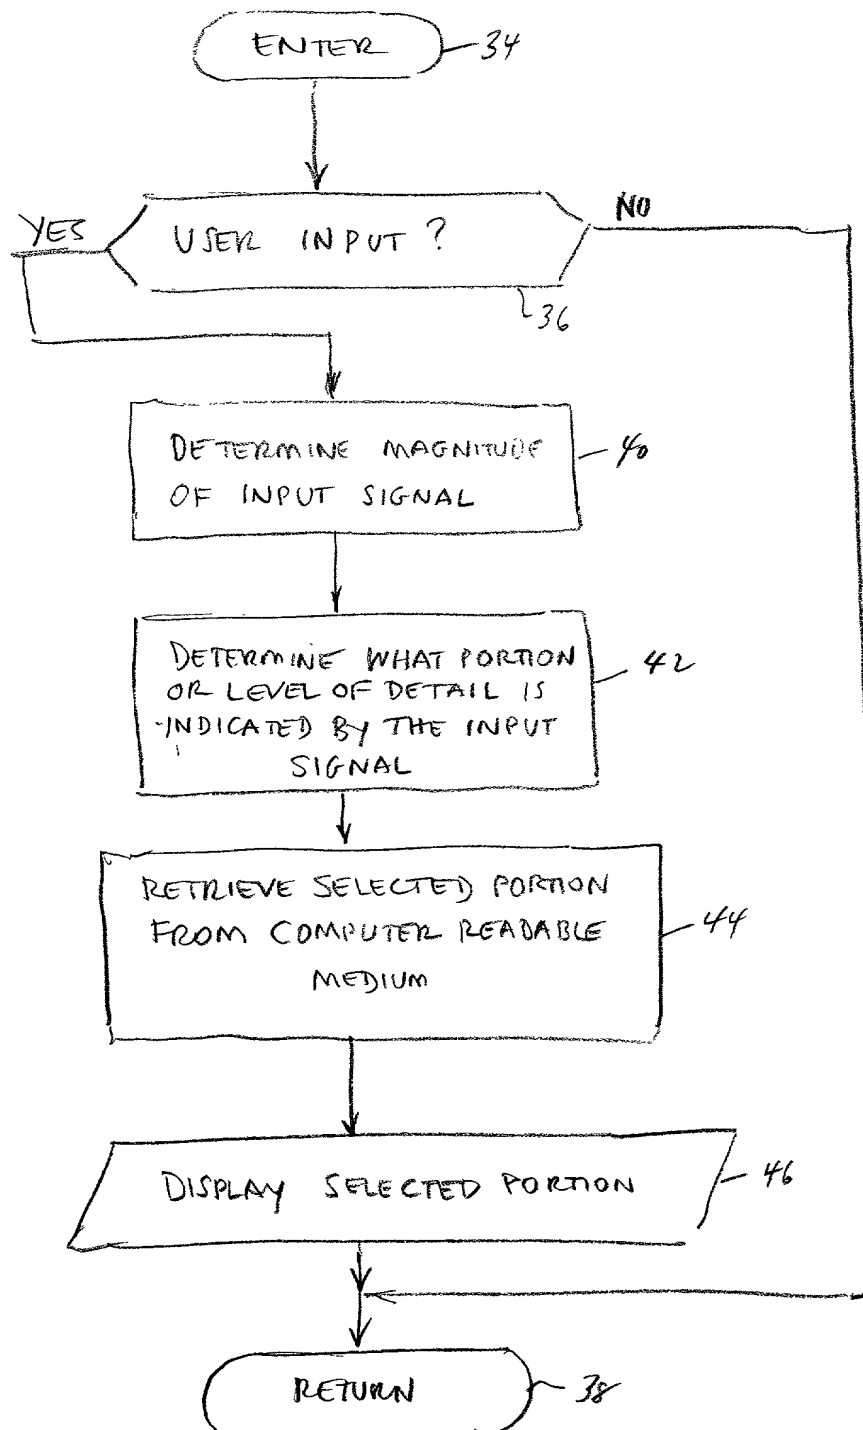 ENTER 34
YES USER INPUT? NO
36
DETERMINE MAGNITUDE 40
OF INPUT SIGNAL
DETERMINE WHAT PORTION 42
OR LEVEL OF DETAIL IS
INDICATED BY THE INPUT
SIGNAL
RETRIEVE SELECTED PORTION
FROM COMPUTER READABLE 44
MEDIUM
DISPLAY SELECTED PORTION 46
RETURN 38